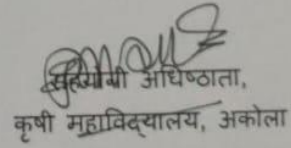 सहयोगी अधिष्ठाता,
कृषी महाविद्यालय, अकोला